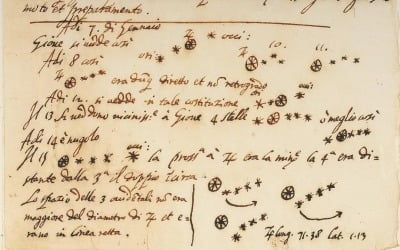 moto et prepatamento.
Adì 7. di Gennaio
Giove si vedde così ori: occ:
Adì 8 così 10. 11.
era dunque diretto et non retrogrado
Adì 12. si vedde in tale costituzione
Il 13 si veddono vicinissime à Giove 4 stelle ò meglio così
Adì 14 è nugolo
Il 15 la prossima à ♃ era la minore la 4ª era di-
stante dalla 3ª il doppio circa
Lo spazio delle 3 occidentali non era
maggiore del diametro di ♃ et e-
rano in linea retta.
♃ long. 71.38 lat. 1.13